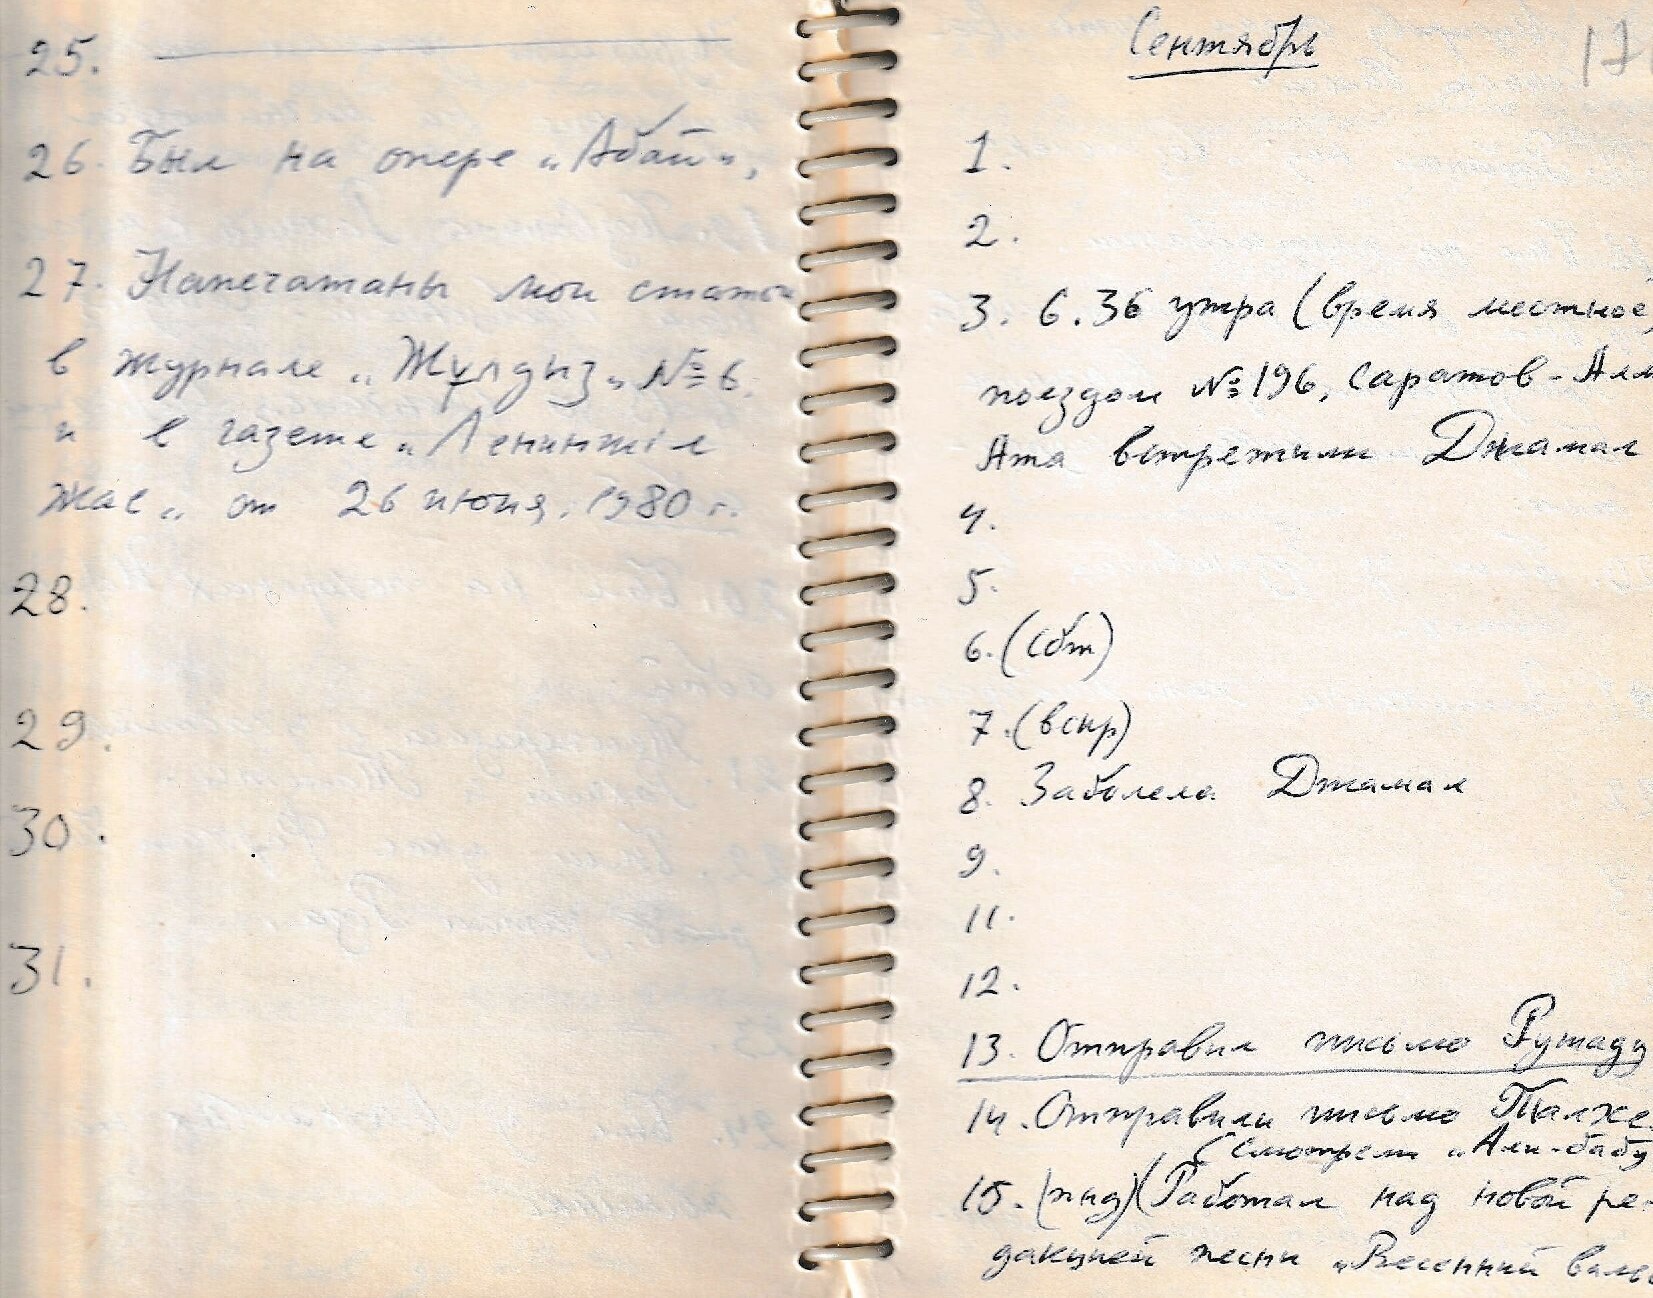 25.
26. Был на опере „Абай",
27. Напечатаны мои статьи
в журнале „Жұлдыз" № 6.
и в газете „Лениншіл
жас" от 26 июня. 1980 г.
28.
29.
30.
31.
Сентябрь
17
1.
2.
3. 6.36 утра (время местное)
поездом № 196, Саратов - Алм
Ата встретили Джамал
4.
5.
6. (сбт)
7. (вскр)
8. Заболела Джамал
9.
11.
12.
13. Отправил письмо
14. Отправили письмо
(Смотрели „Али-бабу
15. (пнд) (Работал над новой ре-
дакцией песни „Весенний вальс